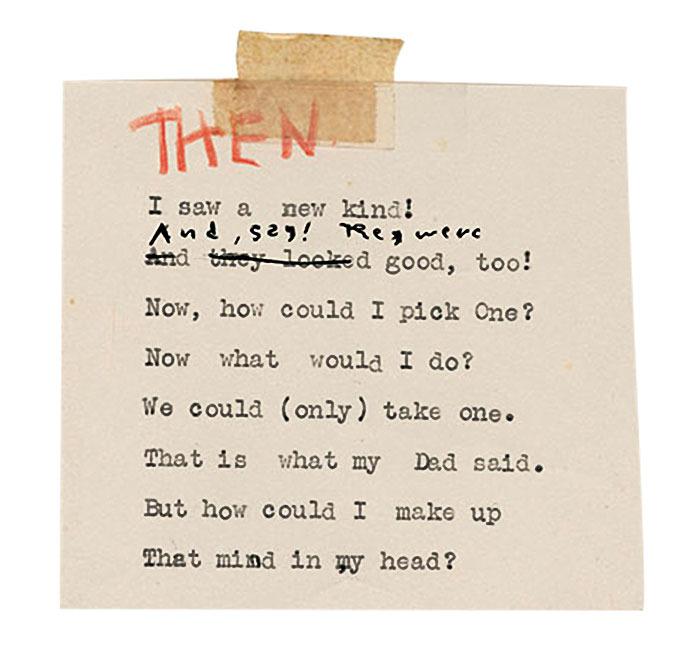 THEN
I saw a new kind!
And, say! They were
And they looked good, too!
Now, how could I pick One?
Now what would I do?
We could (only) take one.
That is what my Dad said.
But how could I make up
That mind in my head?